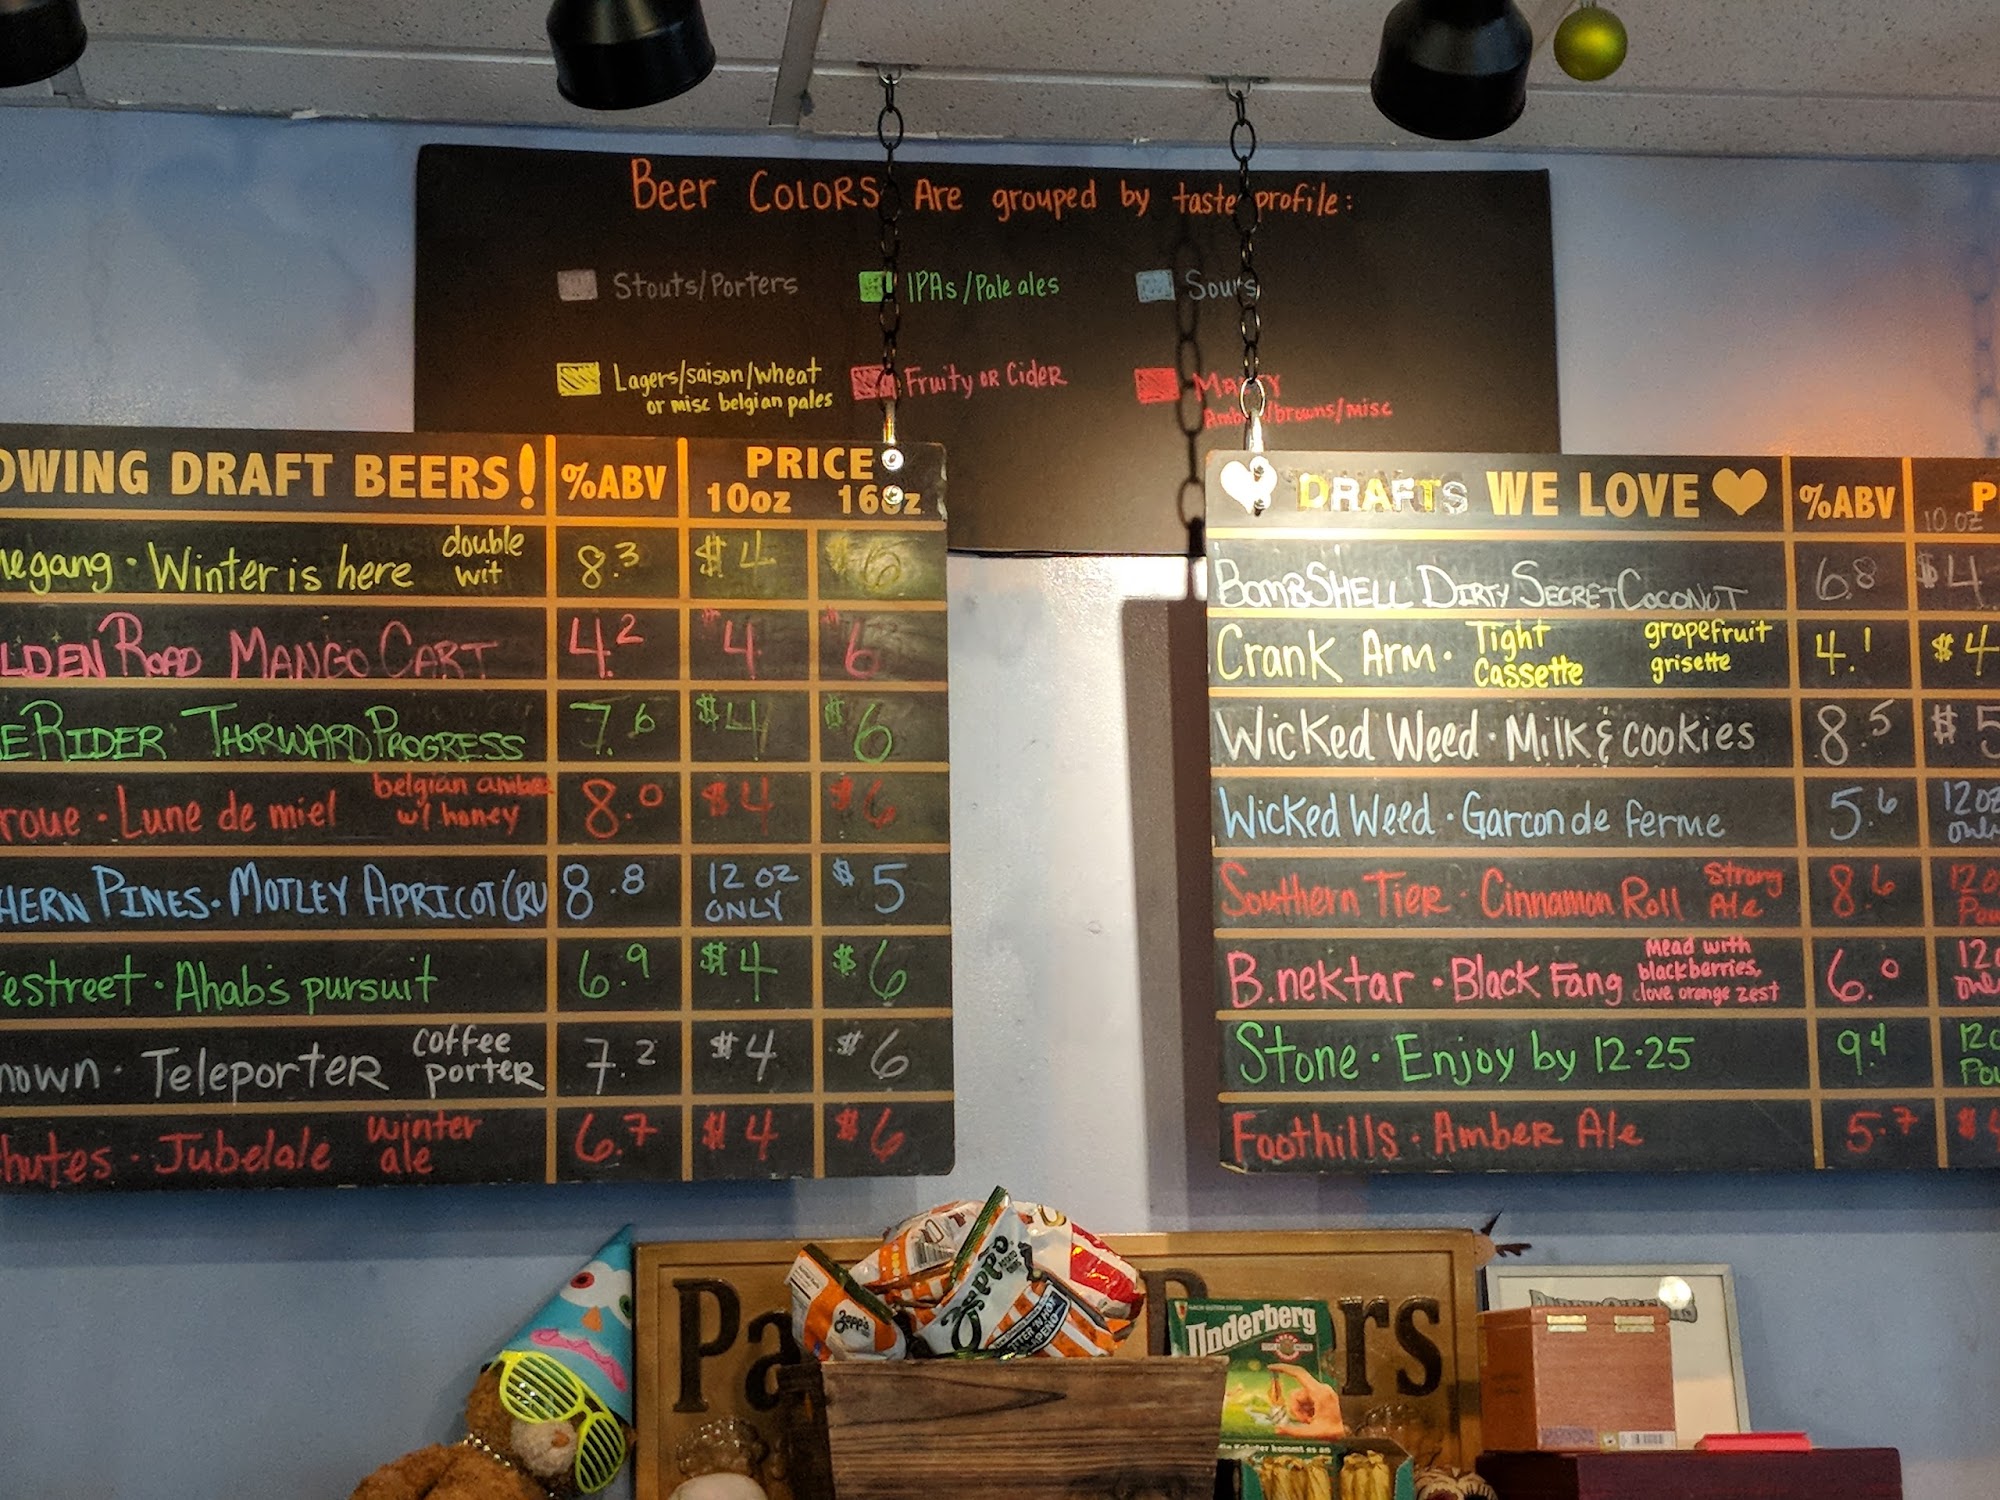 Beer COLORS Are grouped by taste profile:
Stouts/Porters IPAs/Pale ales Sours
Lagers/saison/wheat Fruity OR Cider Malty
or misc belgian pales /browns/misc
OWING DRAFT BEERS! %ABV PRICE
10oz 16oz
egang · Winter is here double wit 8.3 $4 $6
LDEN ROAD MANGO CART 4.2 $4 $6
E RIDER THORWARD PROGRESS 7.6 $4 $6
roue · Lune de miel belgian amber w/ honey 8.0 $4 $6
HERN PINES · MOTLEY APRICOT CRU 8.8 12 OZ ONLY $5
estreet · Ahab's pursuit 6.9 $4 $6
nown · Teleporter coffee porter 7.2 $4 $6
hutes · Jubelale winter ale 6.7 $4 $6
DRAFTS WE LOVE %ABV P
10 OZ
BOMBSHELL DIRTY SECRET COCONUT 6.8 $4
Crank Arm · Tight Cassette grapefruit grisette 4.1 $4
Wicked Weed · Milk & cookies 8.5 $5
Wicked Weed · Garcon de ferme 5.6 12oz only
Southern Tier · Cinnamon Roll Strong Ale 8.6 12o Pou
B.nektar · Black Fang Mead with blackberries, clove orange zest 6.0 12o only
Stone · Enjoy by 12·25 9.4 12o Pou
Foothills · Amber Ale 5.7 $4
Zapp's
Zapp's
Underberg
Pa rs